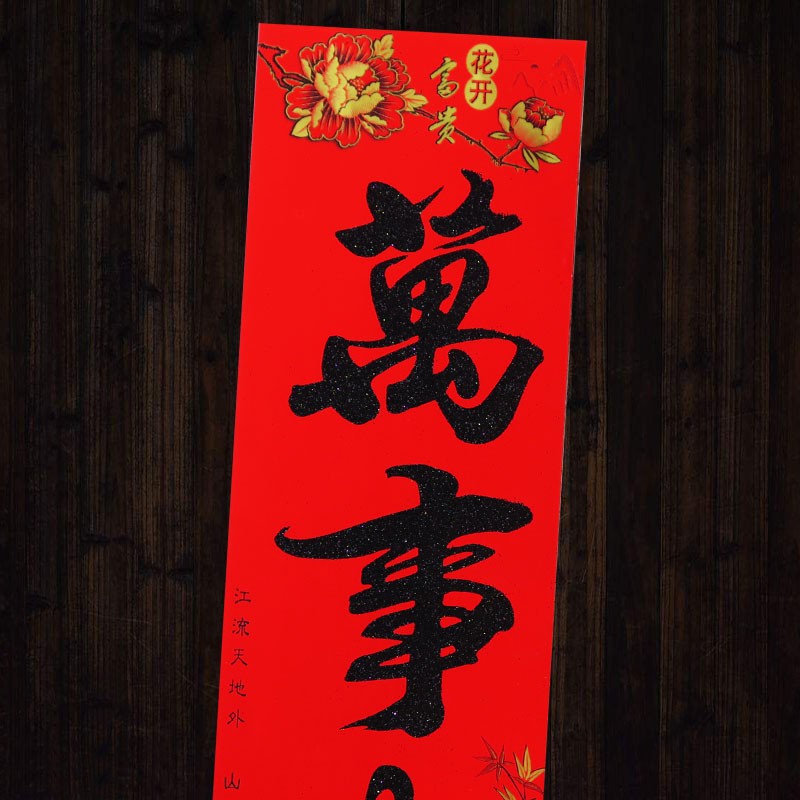 花开
富贵
萬事
江流天地外 山